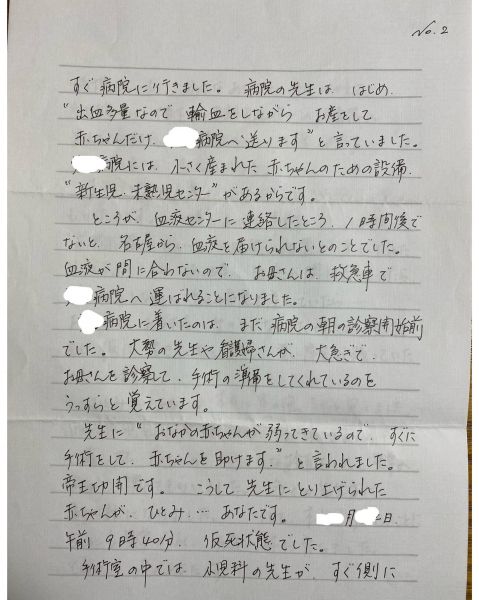 No. 2
すぐ病院に行きました。 病院の先生は はじめ、
"出血多量なので 輸血をしながら お産をして
赤ちゃんだけ、 病院へ送ります"と言っていました。
病院には、小さく産まれた 赤ちゃんのための設備、
"新生児・未熟児センター"があるからです。
ところが、血液センターに連絡したところ、1時間後で
ないと、名古屋から、血液を届けられないとのことでした。
血液が間に合わないので、 お母さんは、救急車で
病院へ運ばれることになりました。
病院に着いたのは、まだ病院の朝の診察開始前
でした。 大勢の先生や看護婦さんが、 大急ぎで、
お母さんを診察して、手術の準備をしてくれているのを
うっすらと覚えています。
先生に "おなかの赤ちゃんが弱ってきているので、すぐに
手術をして、赤ちゃんを助けます。"と言われました。
帝王切開です。 こうして 先生にとり上げられた
赤ちゃんが、ひとみ…あなたです。 月 日
午前 9時40分、 仮死状態でした。
手術室の中では、小児科の先生が、すぐ側に